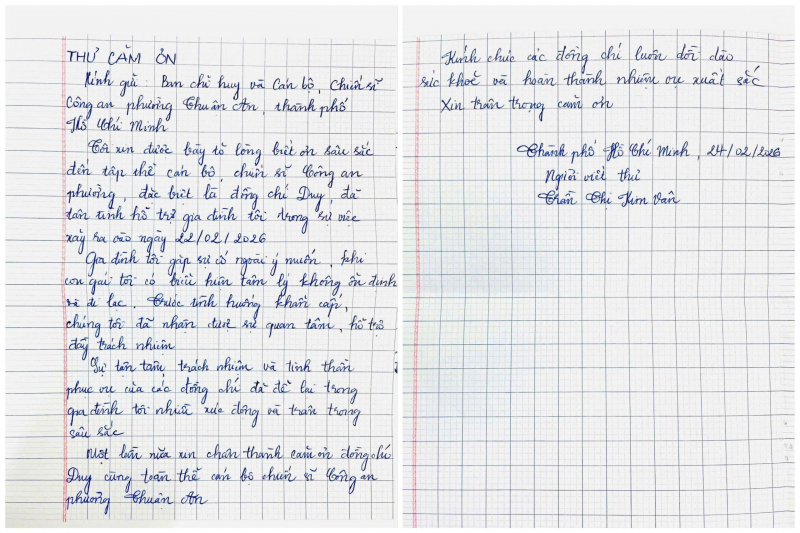 THƯ CẢM ƠN
Kính gửi: Ban chỉ huy và Cán bộ, Chiến sĩ
Công an phường Thuận An, thành phố
Hồ Chí Minh
Tôi xin được bày tỏ lòng biết ơn sâu sắc
đến tập thể cán bộ, chiến sĩ Công an
phường, đặc biệt là đồng chí Duy, đã
tận tình hỗ trợ gia đình tôi trong sự việc
xảy ra vào ngày 22/02/2026
Gia đình tôi gặp sự cố ngoài ý muốn, khi
con gái tôi có biểu hiện tâm lý không ổn định
và đi lạc. Trước tình huống khẩn cấp,
chúng tôi đã nhận được sự quan tâm, hỗ trợ
đầy trách nhiệm
Sự tận tâm, trách nhiệm và tinh thần
phục vụ của các đồng chí đã để lại trong
gia đình tôi nhiều xúc động và trân trọng
sâu sắc
Một lần nữa xin chân thành cảm ơn đồng chí
Duy cùng toàn thể cán bộ chiến sĩ Công an
phường Thuận An
Kính chúc các đồng chí luôn dồi dào
sức khoẻ và hoàn thành nhiệm vụ xuất sắc
Xin trân trọng cảm ơn
Thành phố Hồ Chí Minh, 24/02/2026
Người viết thư
Trần Thị Kim Vân